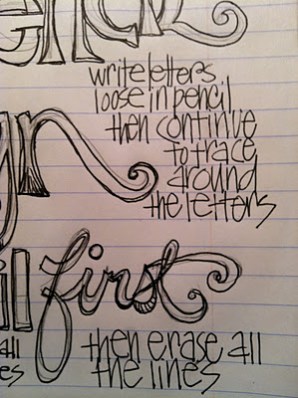 write letters
loose in pencil
then continue
to trace
around
the letters
first
then erase all
the lines